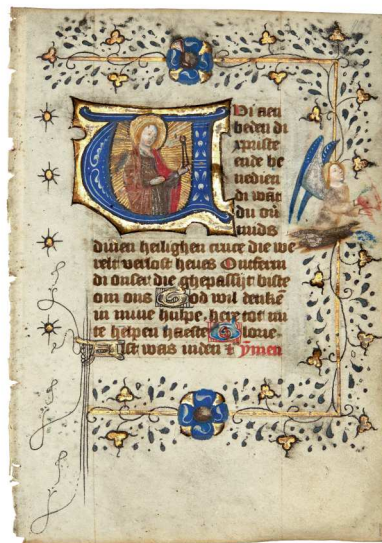 Wi aen
beden di
xpriste
ende be
nedien
di wāt
du ou
mids
dinen heilighen cruce die we
relt verlost heues Ontferm
di onser die ghepassijt biste
om ons God wil denkē
in mine hulpe. here tot mi
te helpen haeste Glorie.
Alst was inden ymen